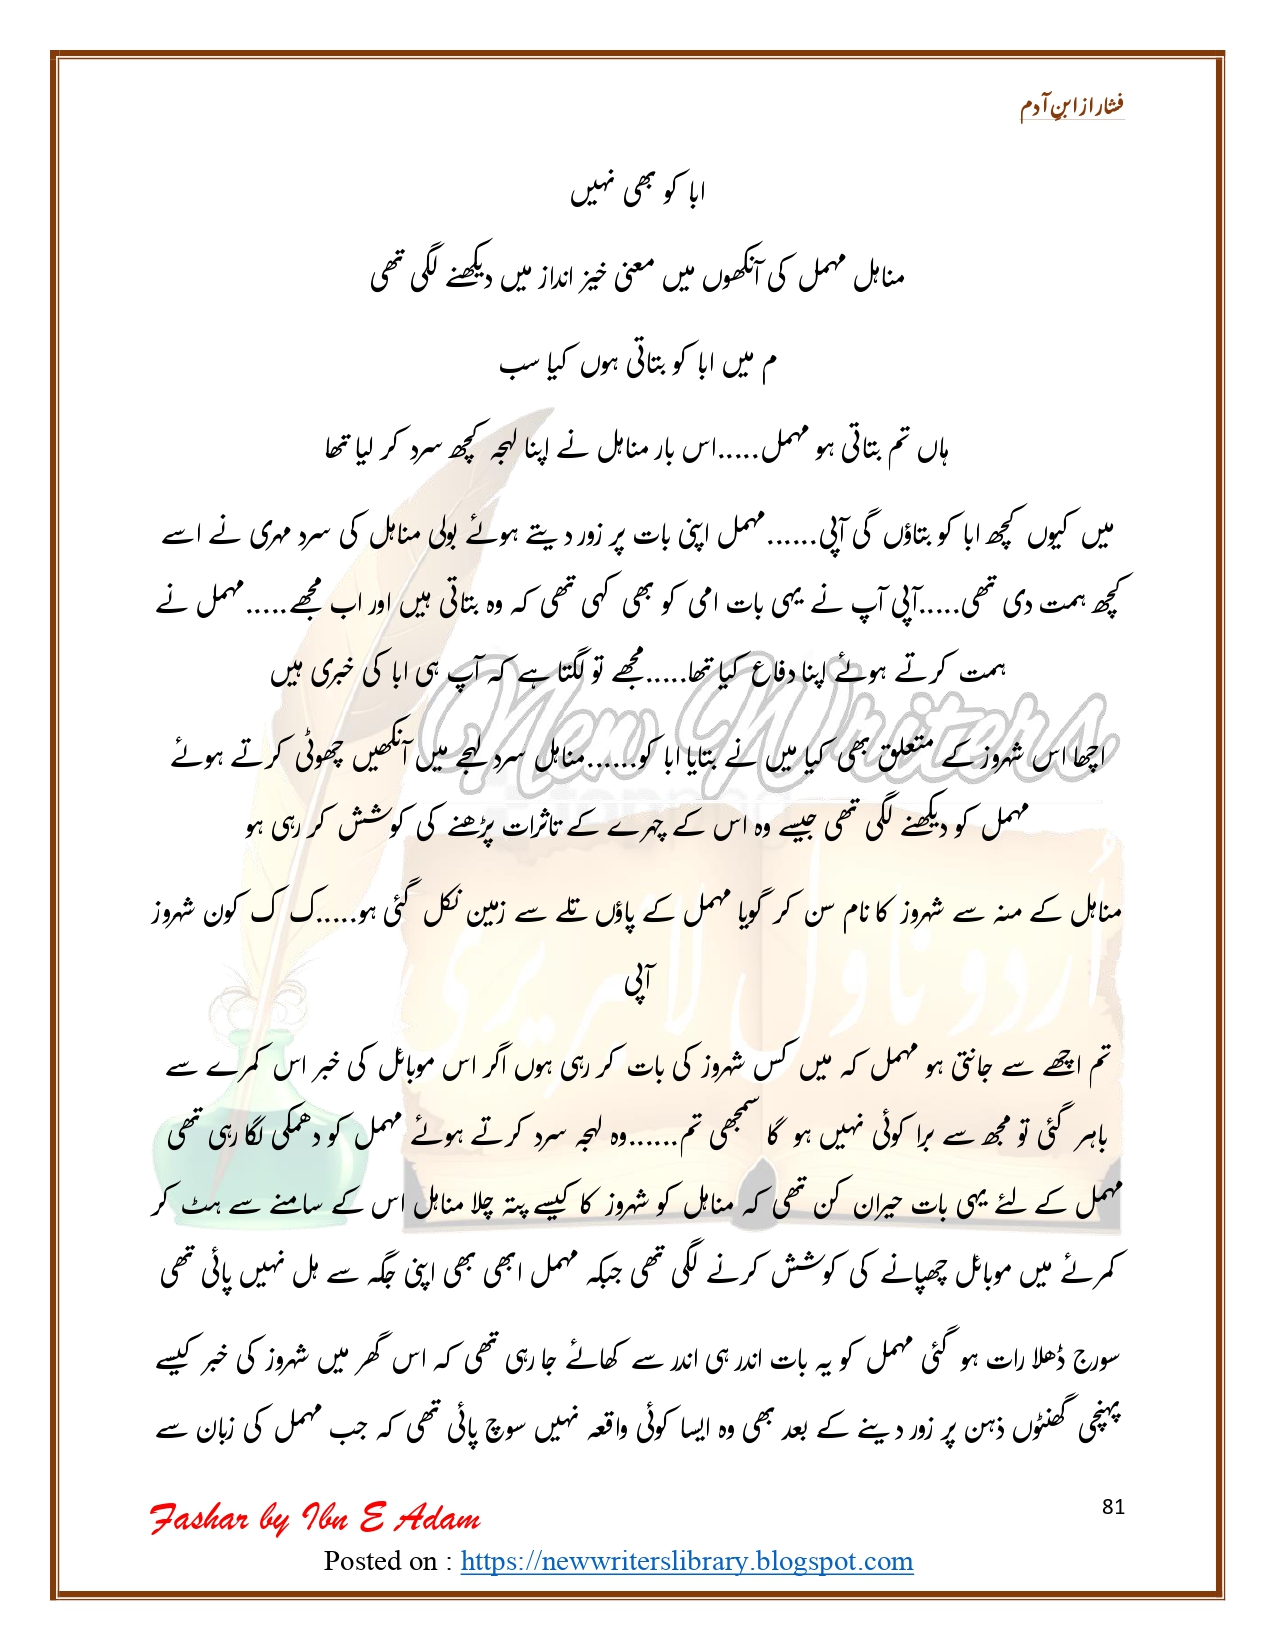 فشار از ابنِ آدم
ابا کو بھی نہیں
مناہل مہمل کی آنکھوں میں معنی خیز انداز میں دیکھنے لگی تھی
م میں ابا کو بتاتی ہوں کیا سب
ہاں تم بتاتی ہو مہمل.....اس بار مناہل نے اپنا لہجہ کچھ سرد کر لیا تھا
میں کیوں کچھ ابا کو بتاؤں گی آپی......مہمل اپنی بات پر زور دیتے ہوئے بولی مناہل کی سرد مہری نے اسے
کچھ ہمت دی تھی.....آپی آپ نے یہی بات امی کو بھی کہی تھی کہ وہ بتاتی ہیں اور اب مجھے.....مہمل نے
ہمت کرتے ہوئے اپنا دفاع کیا تھا.....مجھے تو لگتا ہے کہ آپ ہی ابا کی خبری ہیں
اچھا اس شہروز کے متعلق بھی کیا میں نے بتایا ابا کو......مناہل سرد لہجے میں آنکھیں چھوٹی کرتے ہوئے
مہمل کو دیکھنے لگی تھی جیسے وہ اس کے چہرے کے تاثرات پڑھنے کی کوشش کر رہی ہو
مناہل کے منہ سے شہروز کا نام سن کر گویا مہمل کے پاؤں تلے سے زمین نکل گئی ہو.....ک ک کون شہروز
آپی
تم اچھے سے جانتی ہو مہمل کہ میں کس شہروز کی بات کر رہی ہوں اگر اس موبائل کی خبر اس کمرے سے
باہر گئی تو مجھ سے برا کوئی نہیں ہو گا سمجھی تم......وہ لہجہ سرد کرتے ہوئے مہمل کو دھمکی لگا رہی تھی
مہمل کے لئے یہی بات حیران کن تھی کہ مناہل کو شہروز کا کیسے پتہ چلا مناہل اس کے سامنے سے ہٹ کر
کمرئے میں موبائل چھپانے کی کوشش کرنے لگی تھی جبکہ مہمل ابھی بھی اپنی جگہ سے ہل نہیں پائی تھی
سورج ڈھلا رات ہو گئی مہمل کو یہ بات اندر ہی اندر سے کھائے جا رہی تھی کہ اس گھر میں شہروز کی خبر کیسے
پہنچی گھنٹوں ذہن پر زور دینے کے بعد بھی وہ ایسا کوئی واقعہ نہیں سوچ پائی تھی کہ جب مہمل کی زبان سے
New Writers
اردو ناول لائبریری
81
Fashar by Ibn E Adam
Posted on : https://newwriterslibrary.blogspot.com